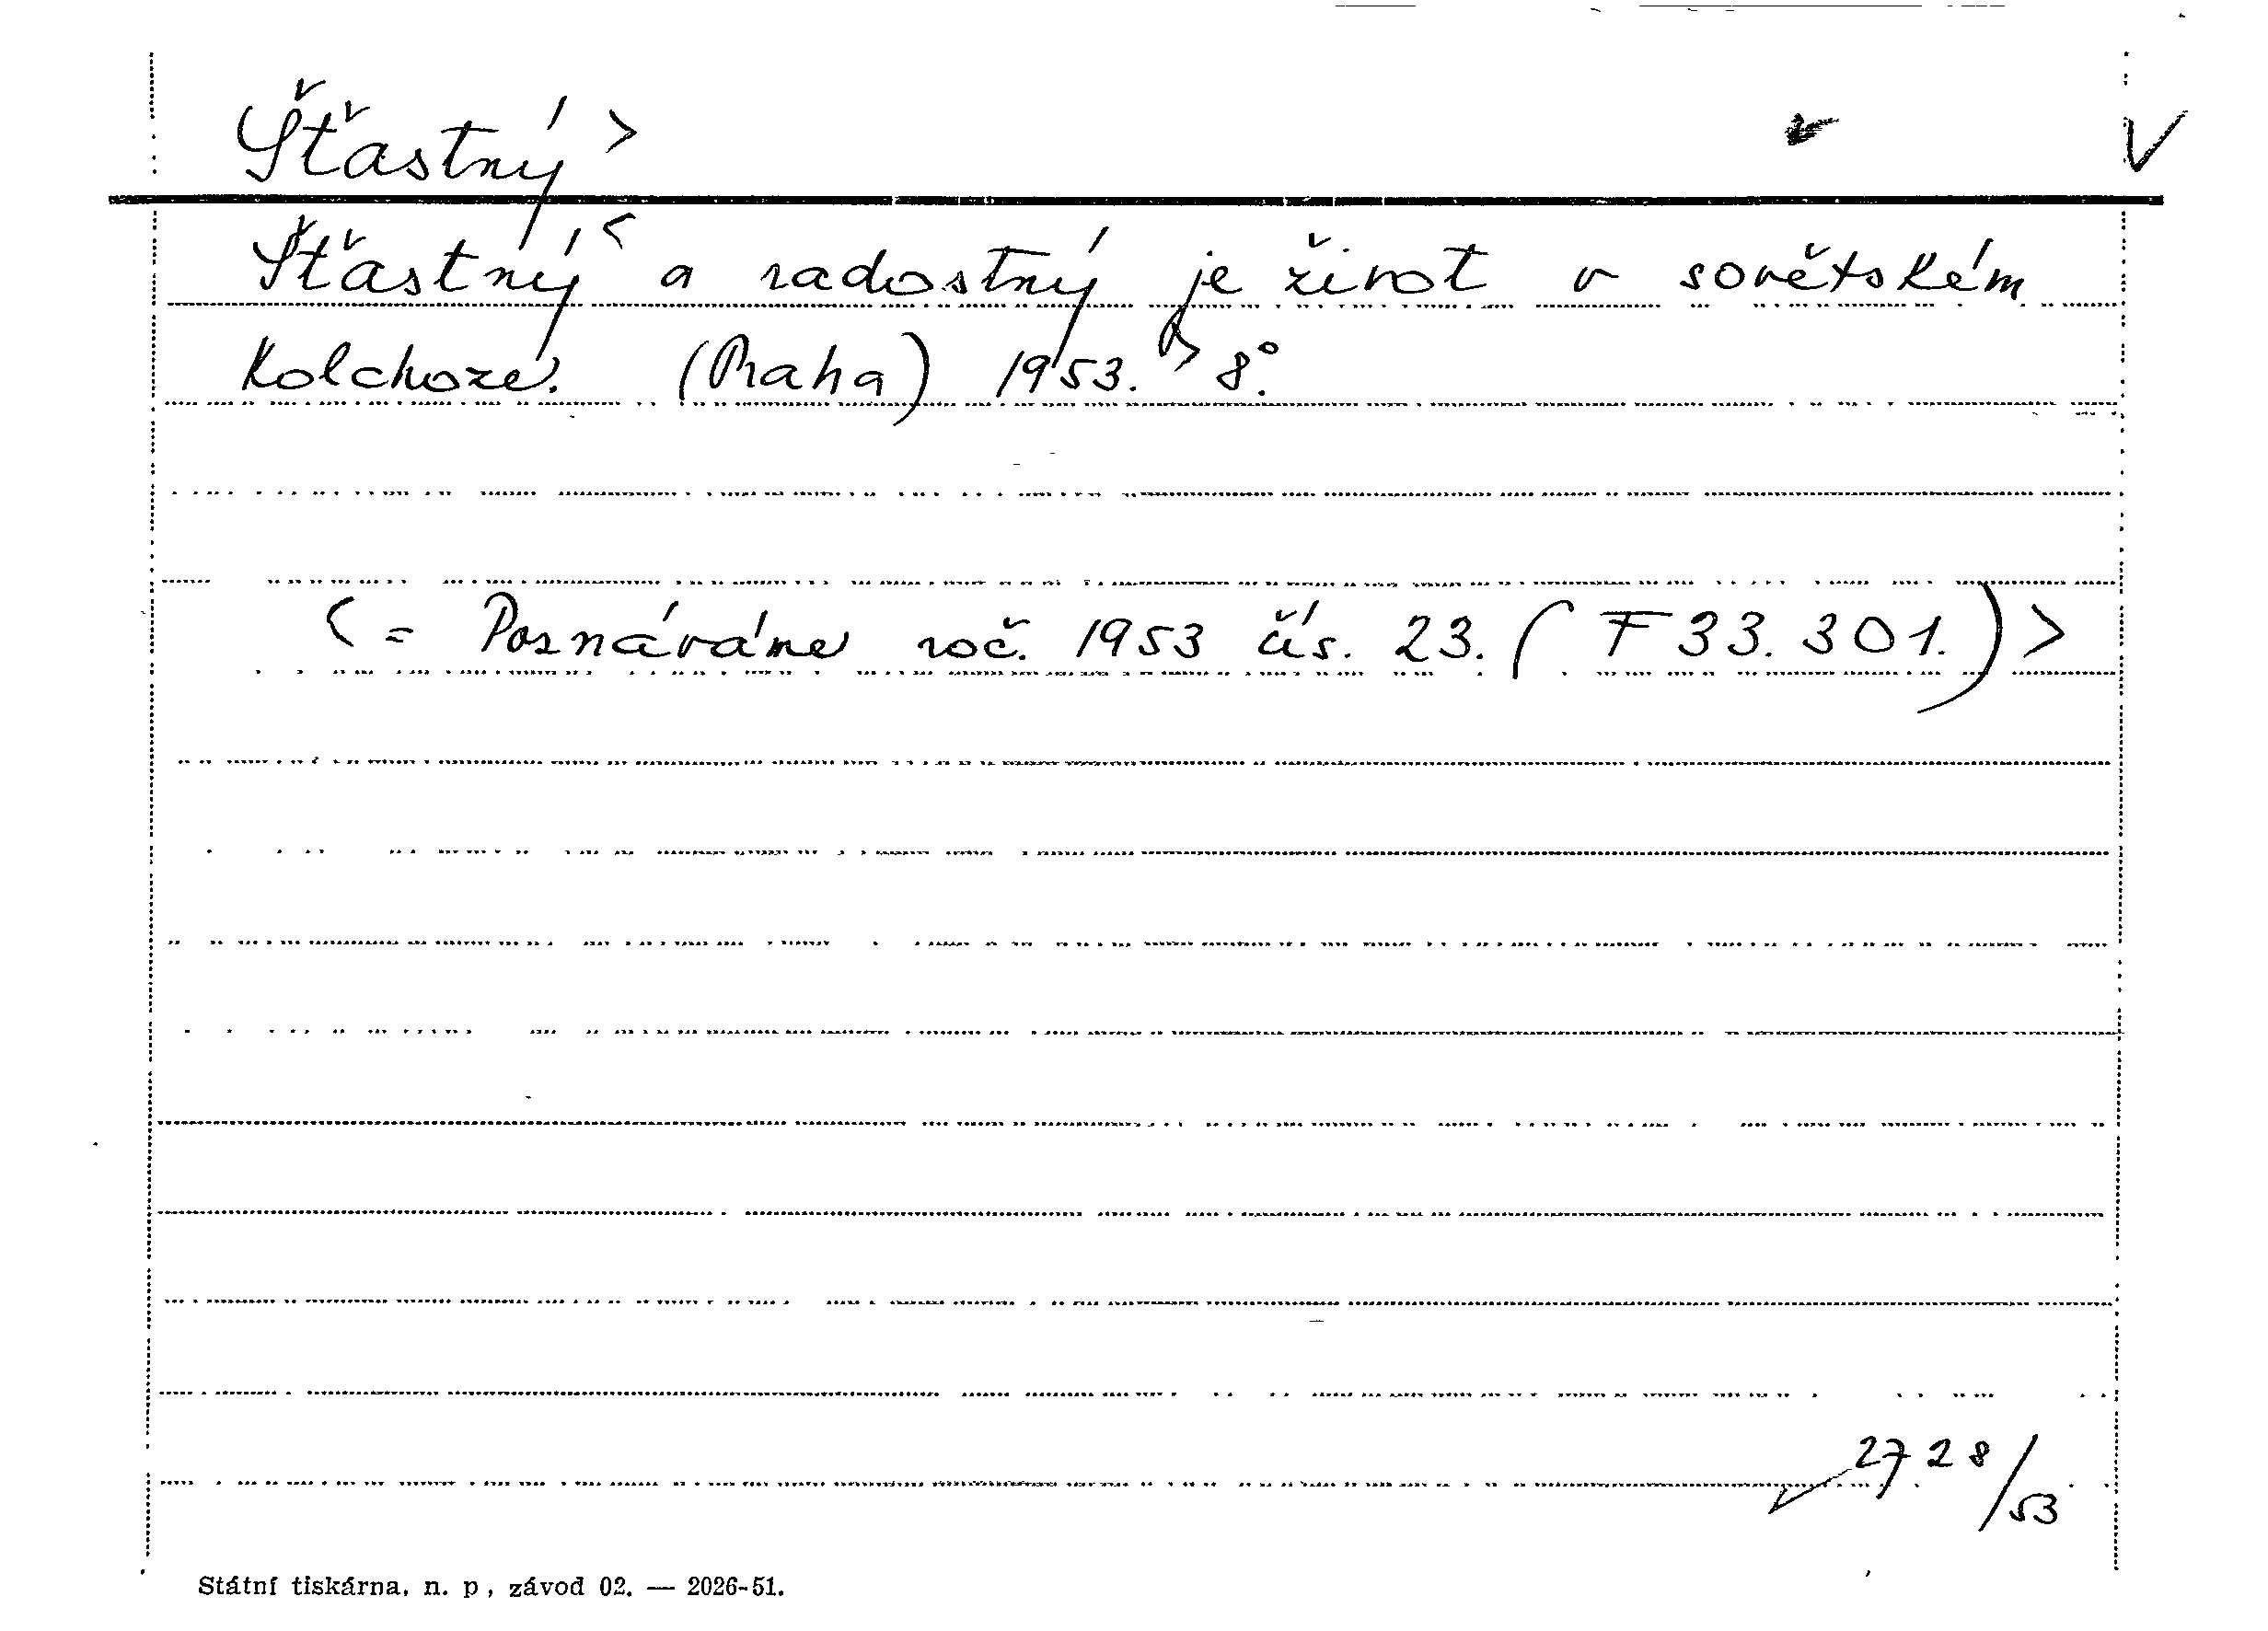 Šťastný >
Šťastný < a radostný je život v sovětském
kolchoze. (Praha) 1953. > 8°.
< = Poznáváme roč. 1953 čís. 23. (F 33.301.) >
2728/53
Státní tiskárna, n. p., závod 02. — 2026-51.